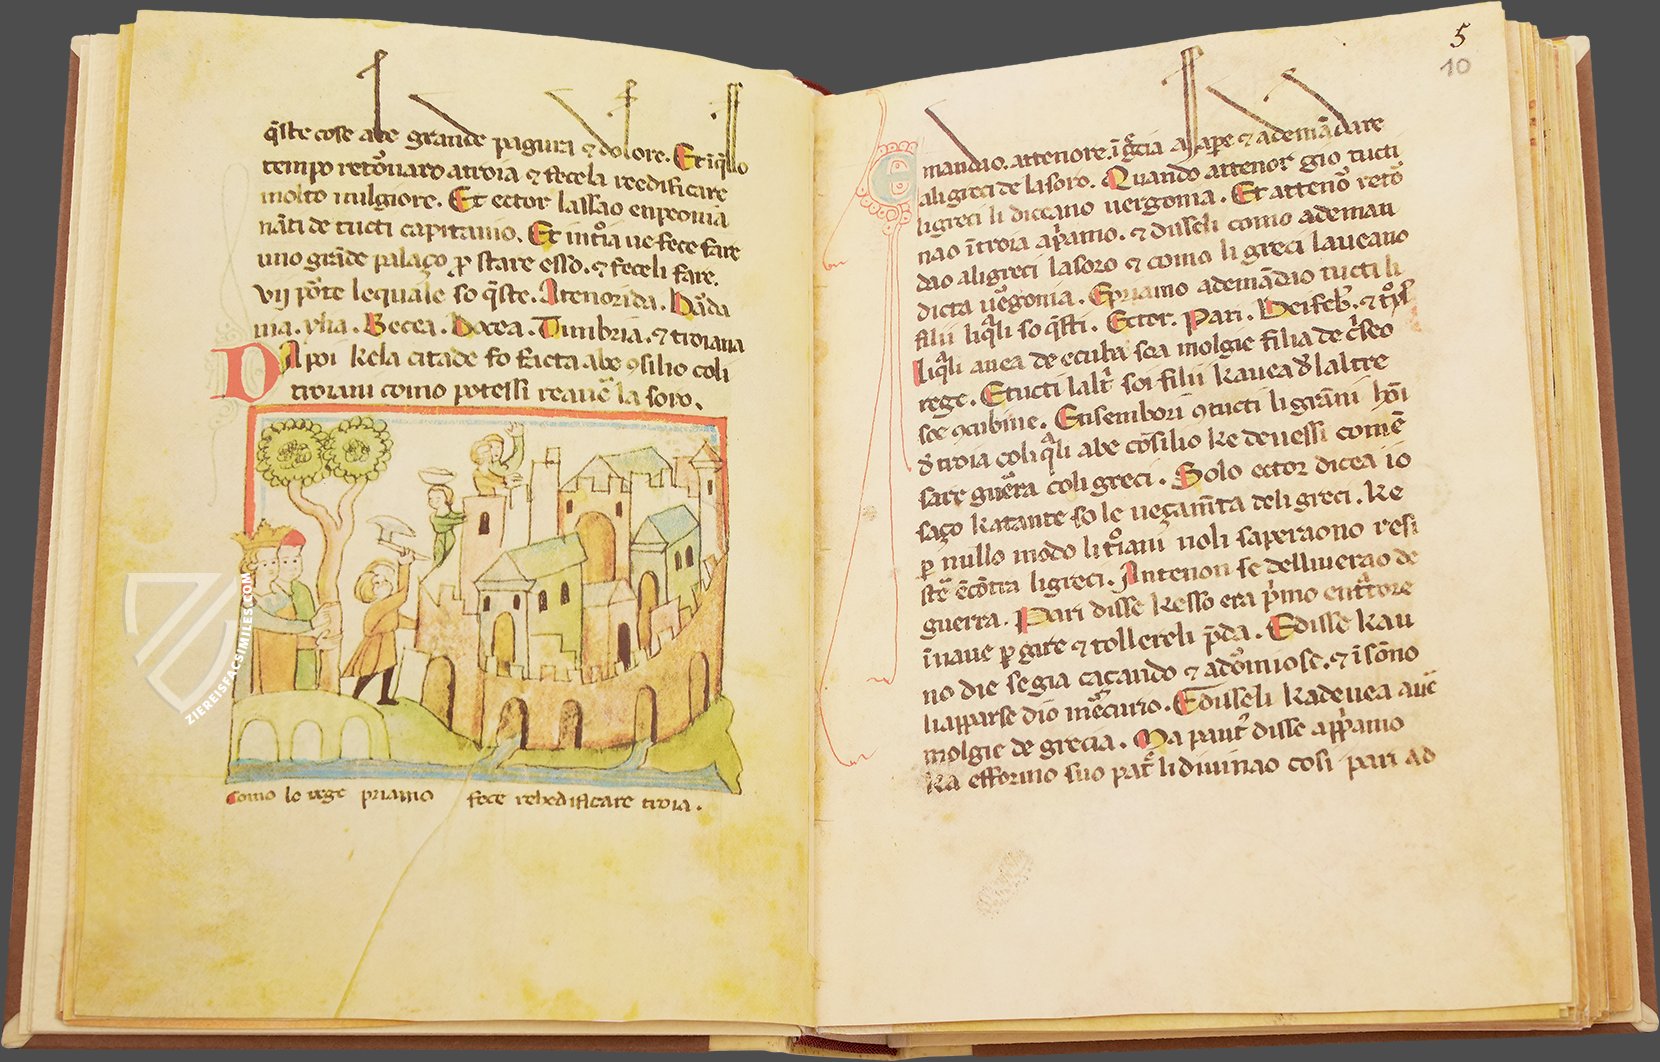 q̄ste cose abe grande paguri ⁊ dolore. Et ī q̄llo
tempo retōnaro a troia ⁊ fecela reedificare
molto mlgiore. Et ector lassao enpeonia
nāti de tucti capitanio. Et intōia ue fece fare
uno grāde palaço p̱ stare essd. ⁊ feceli fare.
vij pōte lequale so q̄ste. Antenorida. Dāda
nia. ylia. Secea. Docea. Timbria. ⁊ troiana
DApoi kela citade fo facta abe ꝯsilio coli
troiani como potessi reauē la soro.
como lo rege priamo fece rehedificare troia.
5
10
Emandio. attenore. ī gr̄cia a sape ⁊ ademādare
ali greci de la soro. Quando attenor gio tucti
li greci li diceano uergoma. Et attenō retō
nao ī troia a p̄amo. ⁊ disseli como ademan
dao ali greci la soro ⁊ como li greci laueano
dicta uḡoma. E priamo ademādio tucti li
filii li q̄li so q̄sti. Ector. Pari. Deifeb̄. ⁊ tr̄ol
li q̄li auea de ecuba sea molgie filia de c̄seo
rege. E tucti laltr̄ soi filii kauea d̄ laltre
soe ꝯcubine. Ensembori ꝯ tucti li grāni hōi
d̄ troia coli q̄li abe cōsilio ke deuessi comē
sare guēra coli greci. Solo ector dicea io
saço katante so le ueçam̄ta deli greci. Ke
p̱ nullo modo li tr̄iani noli saperaono resi
stē ēcōtra li greci. Antenori se delliuerao de
guerra. Pari disse kesso era p̄mo entrore
ī naue p̱ gire ⁊ tollereli p̄da. E disse kau
no die se gia caçando ⁊ adōmiose. ⁊ ī sōno
li apparse dio mēcurio. E disseli kadeuea auē
molgie de grecia. Ma pantr̄ disse a p̄iamo
ka efforino suo patr̄ li diuinao cosi pari ad
ZIEREISFACSIMILES.COM